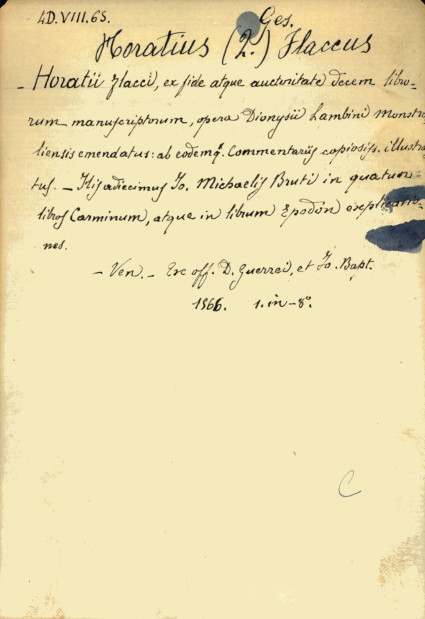 4D.VIII.65.
Ges.
Horatius (2.) Flaccus
- Horatii Flacci, ex fide atque auctoritate decem libro-
rum manuscriptorum, opera Dionysii Lambini Monstro
liensis emendatus: ab eodemq. Commentariis copiosiss. illustra
tus. - His adiecimus Jo. Michaelis Bruti in quatuor
libros Carminum, atque in librum Epodon explicatio-
nes.
- Ven. - Ex off. D. Guerrei, et Jo. Bapt.
1566. 1. in-8°.
C